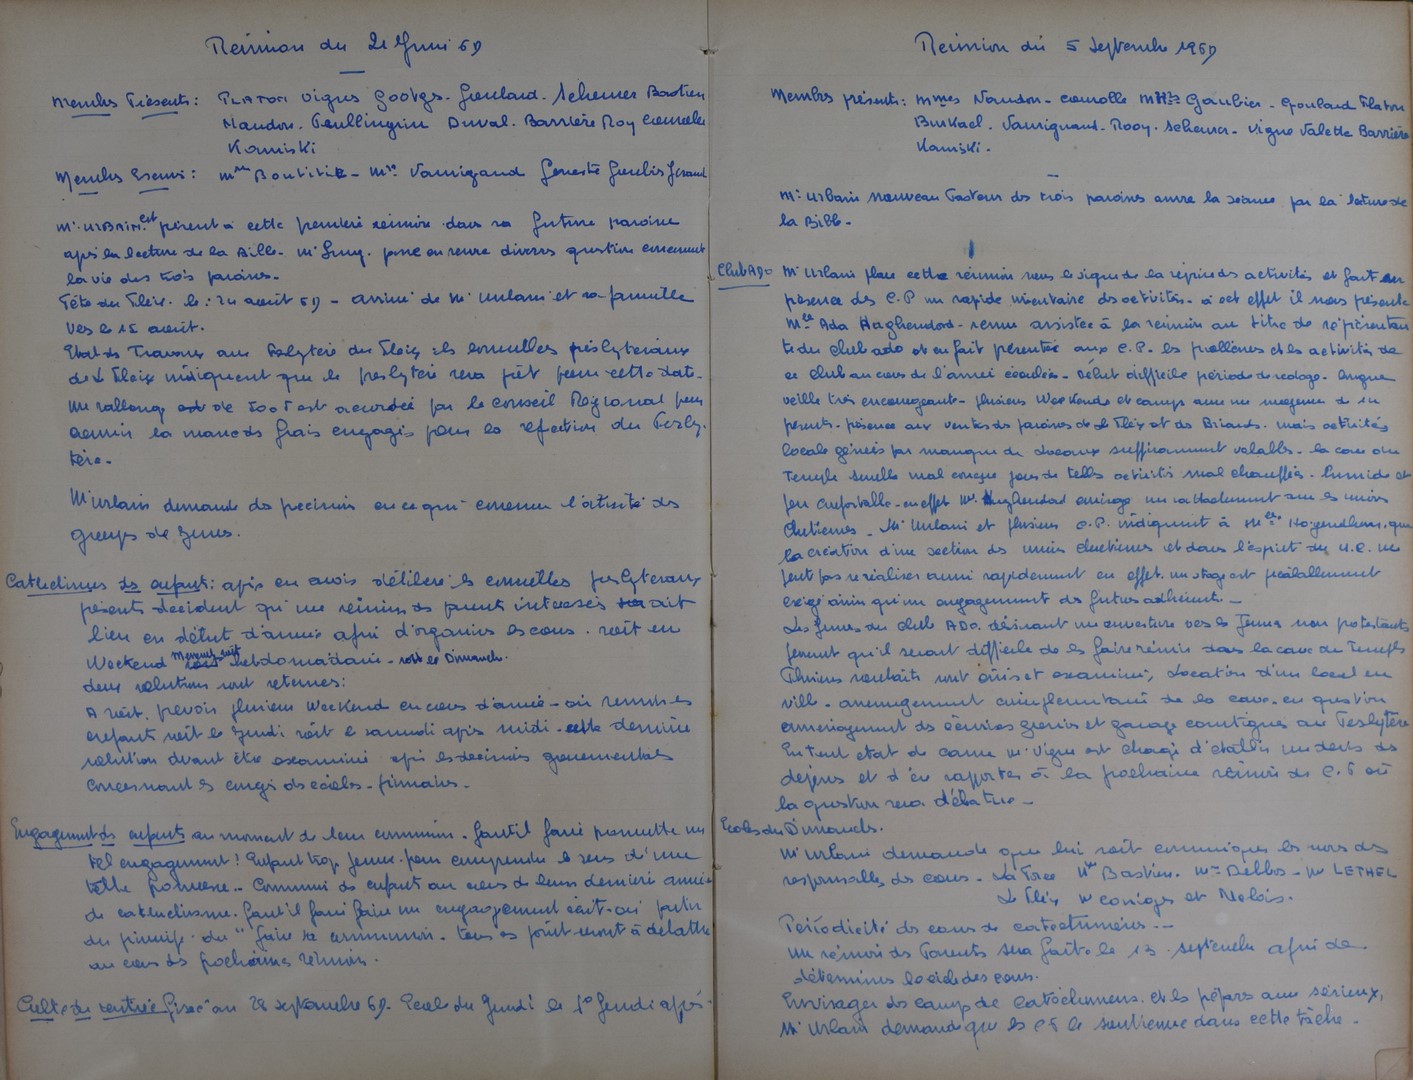 Réunion du 21 Juin 69
Membres Présents : PLATON Vigne Goulard. Scheurer Bastien
Naudon. Duval. Barrière Roy
Kamiski
Membres Excusés : Mme M. Vaurigaud
M. URBAIN est présent à cette première réunion dans sa future paroisse
après la lecture de la Bible. M. pose en revue diverses question concernant
la vie des trois paroisses.
Fête du Fleix. le : 24 août 69 - arrivée de M. Urbain et sa famille
vers le 15 août.
Etat des Travaux au Presbytère du Fleix les conseillers presbytéraux
de Le Fleix indiquent que le presbytère sera prêt pour cette date.
Une rallonge est de 500 F est accordée par le conseil Régional pour
la masse des frais engagés pour la réfection du Presby.
tère.
M. Urbain demande des précisions en ce qui concerne l'activité des
groupes de jeunes.
Catéchismes des enfants : après en avoir délibéré les conseillers presbytéraux
présents décident qu'une réunion des parents intéressés ait
lieu en début d'année afin d'organiser les cours. soit en
Weekend Mensuel soit hebdomadaire - soit le Dimanche.
deux solutions sont retenues :
A soit. prévoir plusieurs Weekend en cours d'année - où réunir les
enfants soit le Jeudi soit le samedi après midi - cette dernière
solution devant être examinée après les décisions gouvernementales
concernant les congés des écoles - primaires.
Engagement des enfants au moment de leur communion. Faut-il faire promettre un
tel engagement ! Enfant trop jeune pour comprendre le sens d'une
telle promesse - Communion des enfants au cours de leur dernière année
de catéchisme. Faut-il faire faire un engagement écrit - ou partir
du principe du "faire sa communion. tous ces points seront à débattre
au cours des prochaines réunions.
Culte de rentrée fixé au 28 septembre 69. Ecole du Jeudi le 1° Jeudi après
Réunion du 5 Septembre 1969
Membres présents : Mmes Naudon - Mrs Gaubier - Goulard Platon
Vaurigaud. Rooy. Scheurer - Vigne Valette Barrière
Kamiski.
M. Urbain nouveau Pasteur des trois paroisses ouvre la séance par la lecture de
la Bible -
Club ADO M. Urbain place cette réunion sous le signe de la reprise des activités et fait en
présence des C.P un rapide inventaire des activités - à cet effet il nous présente
Mlle Ada - venue assister à la réunion au titre de représentan
te du Club ado et en fait présenter aux C.P. les problèmes et les activités de
ce Club au cours de l'année écoulée - début difficile période de rodage -
veille très encourageante - plusieurs Weekends et camps avec une moyenne de
présents - présence aux ventes des paroisses de Le Fleix et des Briands. mais activités
locales gênées par manque de Locaux suffisamment valables - la cave du
Temple semble mal conçue pour de telles activités mal chauffée. humide et
peu confortable - en effet Mlle envisage un rattachement aux unions
Chrétiennes - M. Urbain et plusieurs C.P. indiquent à Mlle que
la création d'une section des unions chrétiennes et dans l'esprit des U.C. ne
peut pas se réaliser aussi rapidement en effet. un stage est préalablement
exigé ainsi qu'un engagement des futurs adhérents -
Les Jeunes du Club ADO. désirant une ouverture vers les Jeunes non protestants
pensent qu'il serait difficile de les faire réunir dans la cave du Temple
Plusieurs souhaits sont émis et examinés, Location d'un local en
ville - aménagement complémentaire de la cave en question
aménagement des greniers et garage contigus au Presbytère
En tout état de cause M. Vigne est chargé d'établir un devis des
dépenses et d'en rapporter à la prochaine réunion de C.P où
la question sera débattue -
Ecoles du Dimanche.
M. Urbain demande que lui soit communiqué les noms des
responsables des cours - La Force Mme Bastien. Mme Delbos - M LETHEL
Le Fleix
Périodicité des cours de catéchumènes --
Une réunion des Parents sera faite le 13 septembre afin de
déterminer le cycle des cours.
Envisager des camps de Catéchumènes et les préparer avec sérieux,
M. Urbain demande que les CP le soutienne dans cette tâche -